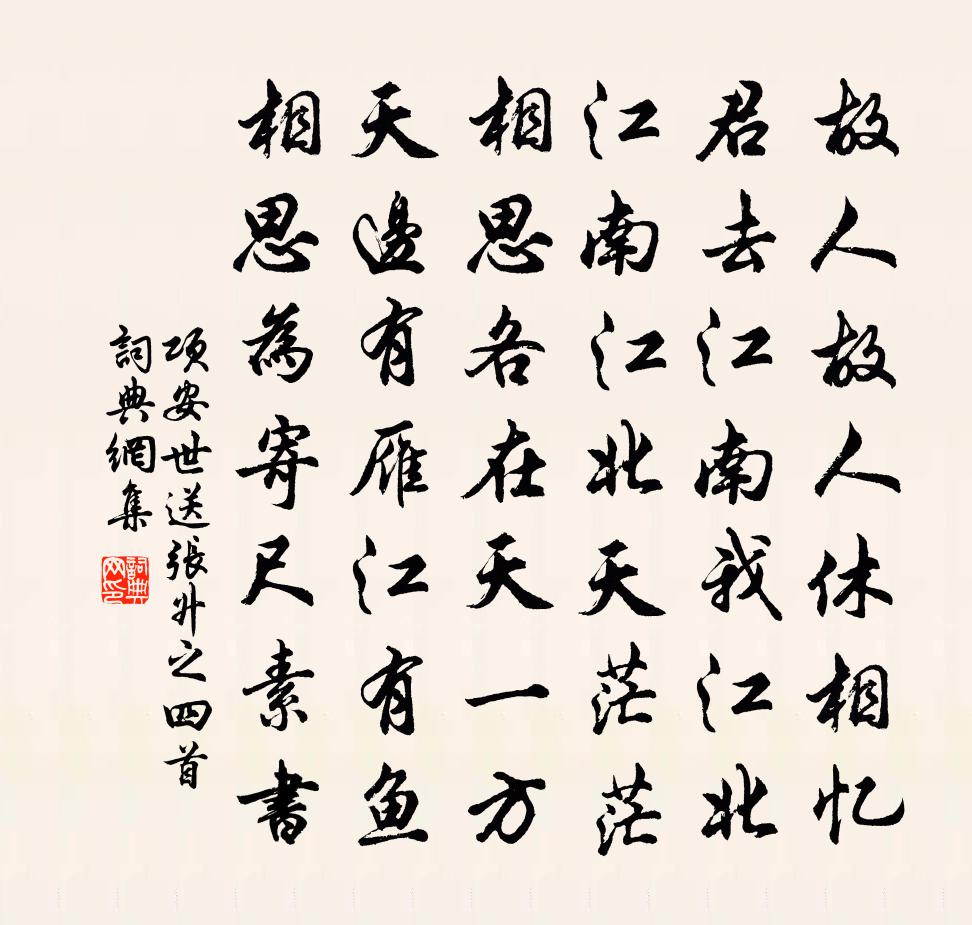 故人故人休相忆
君去江南我江北
江南江北天茫茫
相思各在天一方
天邊有雁江有鱼
相思為寄尺素書
项安世送張升之四首
詞典網集
詞典
网印